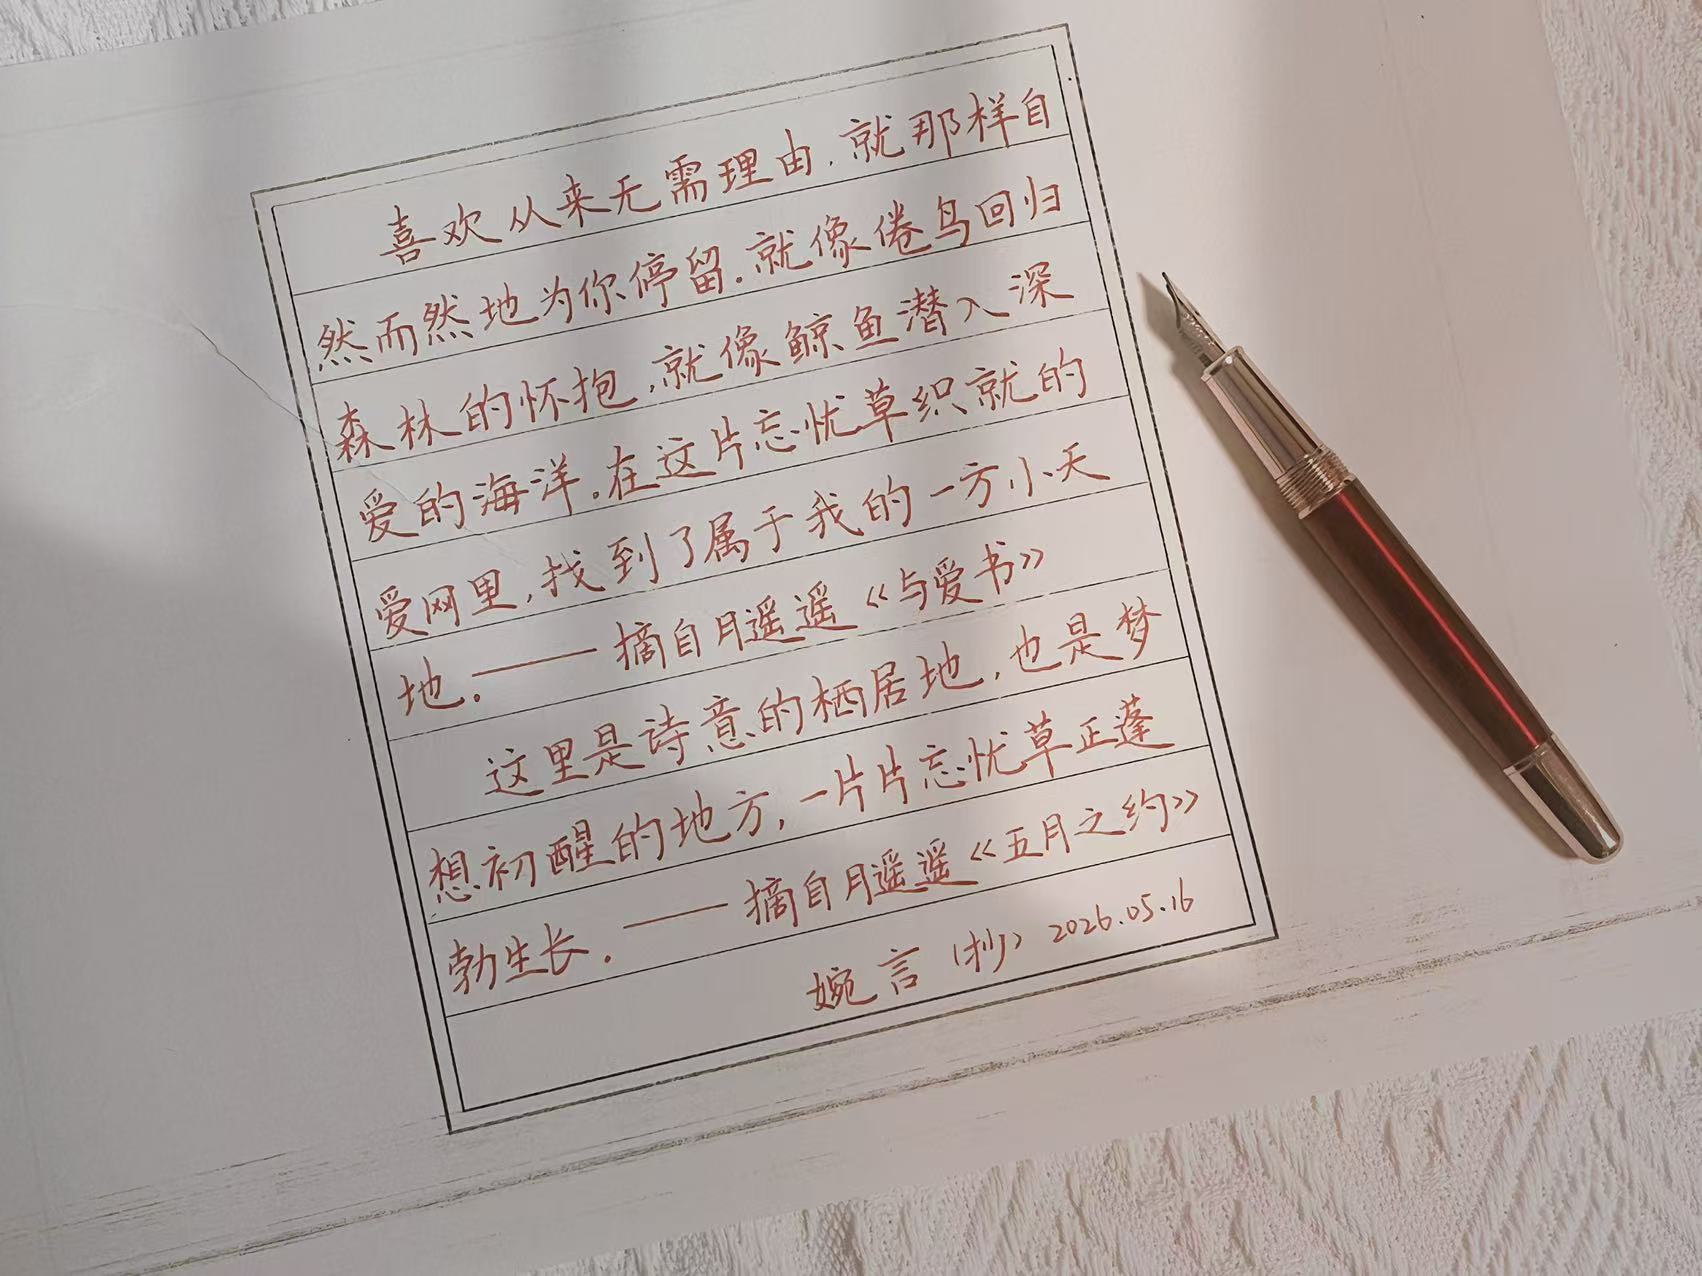 喜欢从来无需理由,就那样自
然而然地为你停留.就像倦鸟回归
森林的怀抱,就像鲸鱼潜入深
爱的海洋。在这片忘忧草织就的
爱网里,找到了属于我的一方小天
地。——摘自月遥遥《与爱书》
这里是诗意的栖居地,也是梦
想初醒的地方,一片片忘忧草正蓬
勃生长。——摘自月遥遥《五月之约》
婉言(抄) 2026.05.16